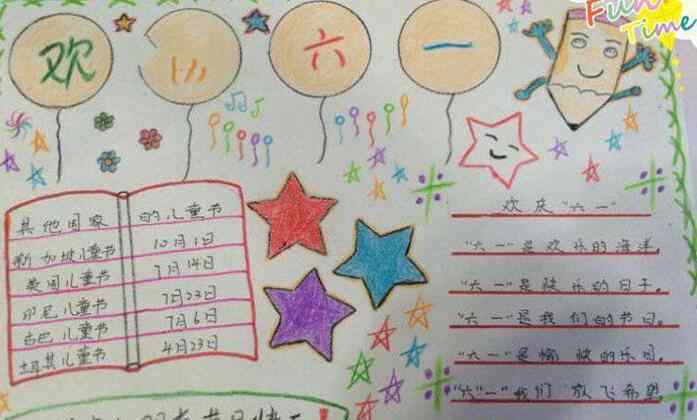 Fun
Time
欢 六 一
其他国家 的儿童节
新加坡儿童节 10月1日
美国儿童节 7月14日
印尼儿童节 7月23日
古巴儿童节 7月6日
土耳其儿童节 4月23日
欢庆"六一"
"六一"是欢乐的海洋,
"六一"是快乐的日子。
"六一"是我们的节日。
"六一"是愉快的乐日。
"六一"我们放飞希望